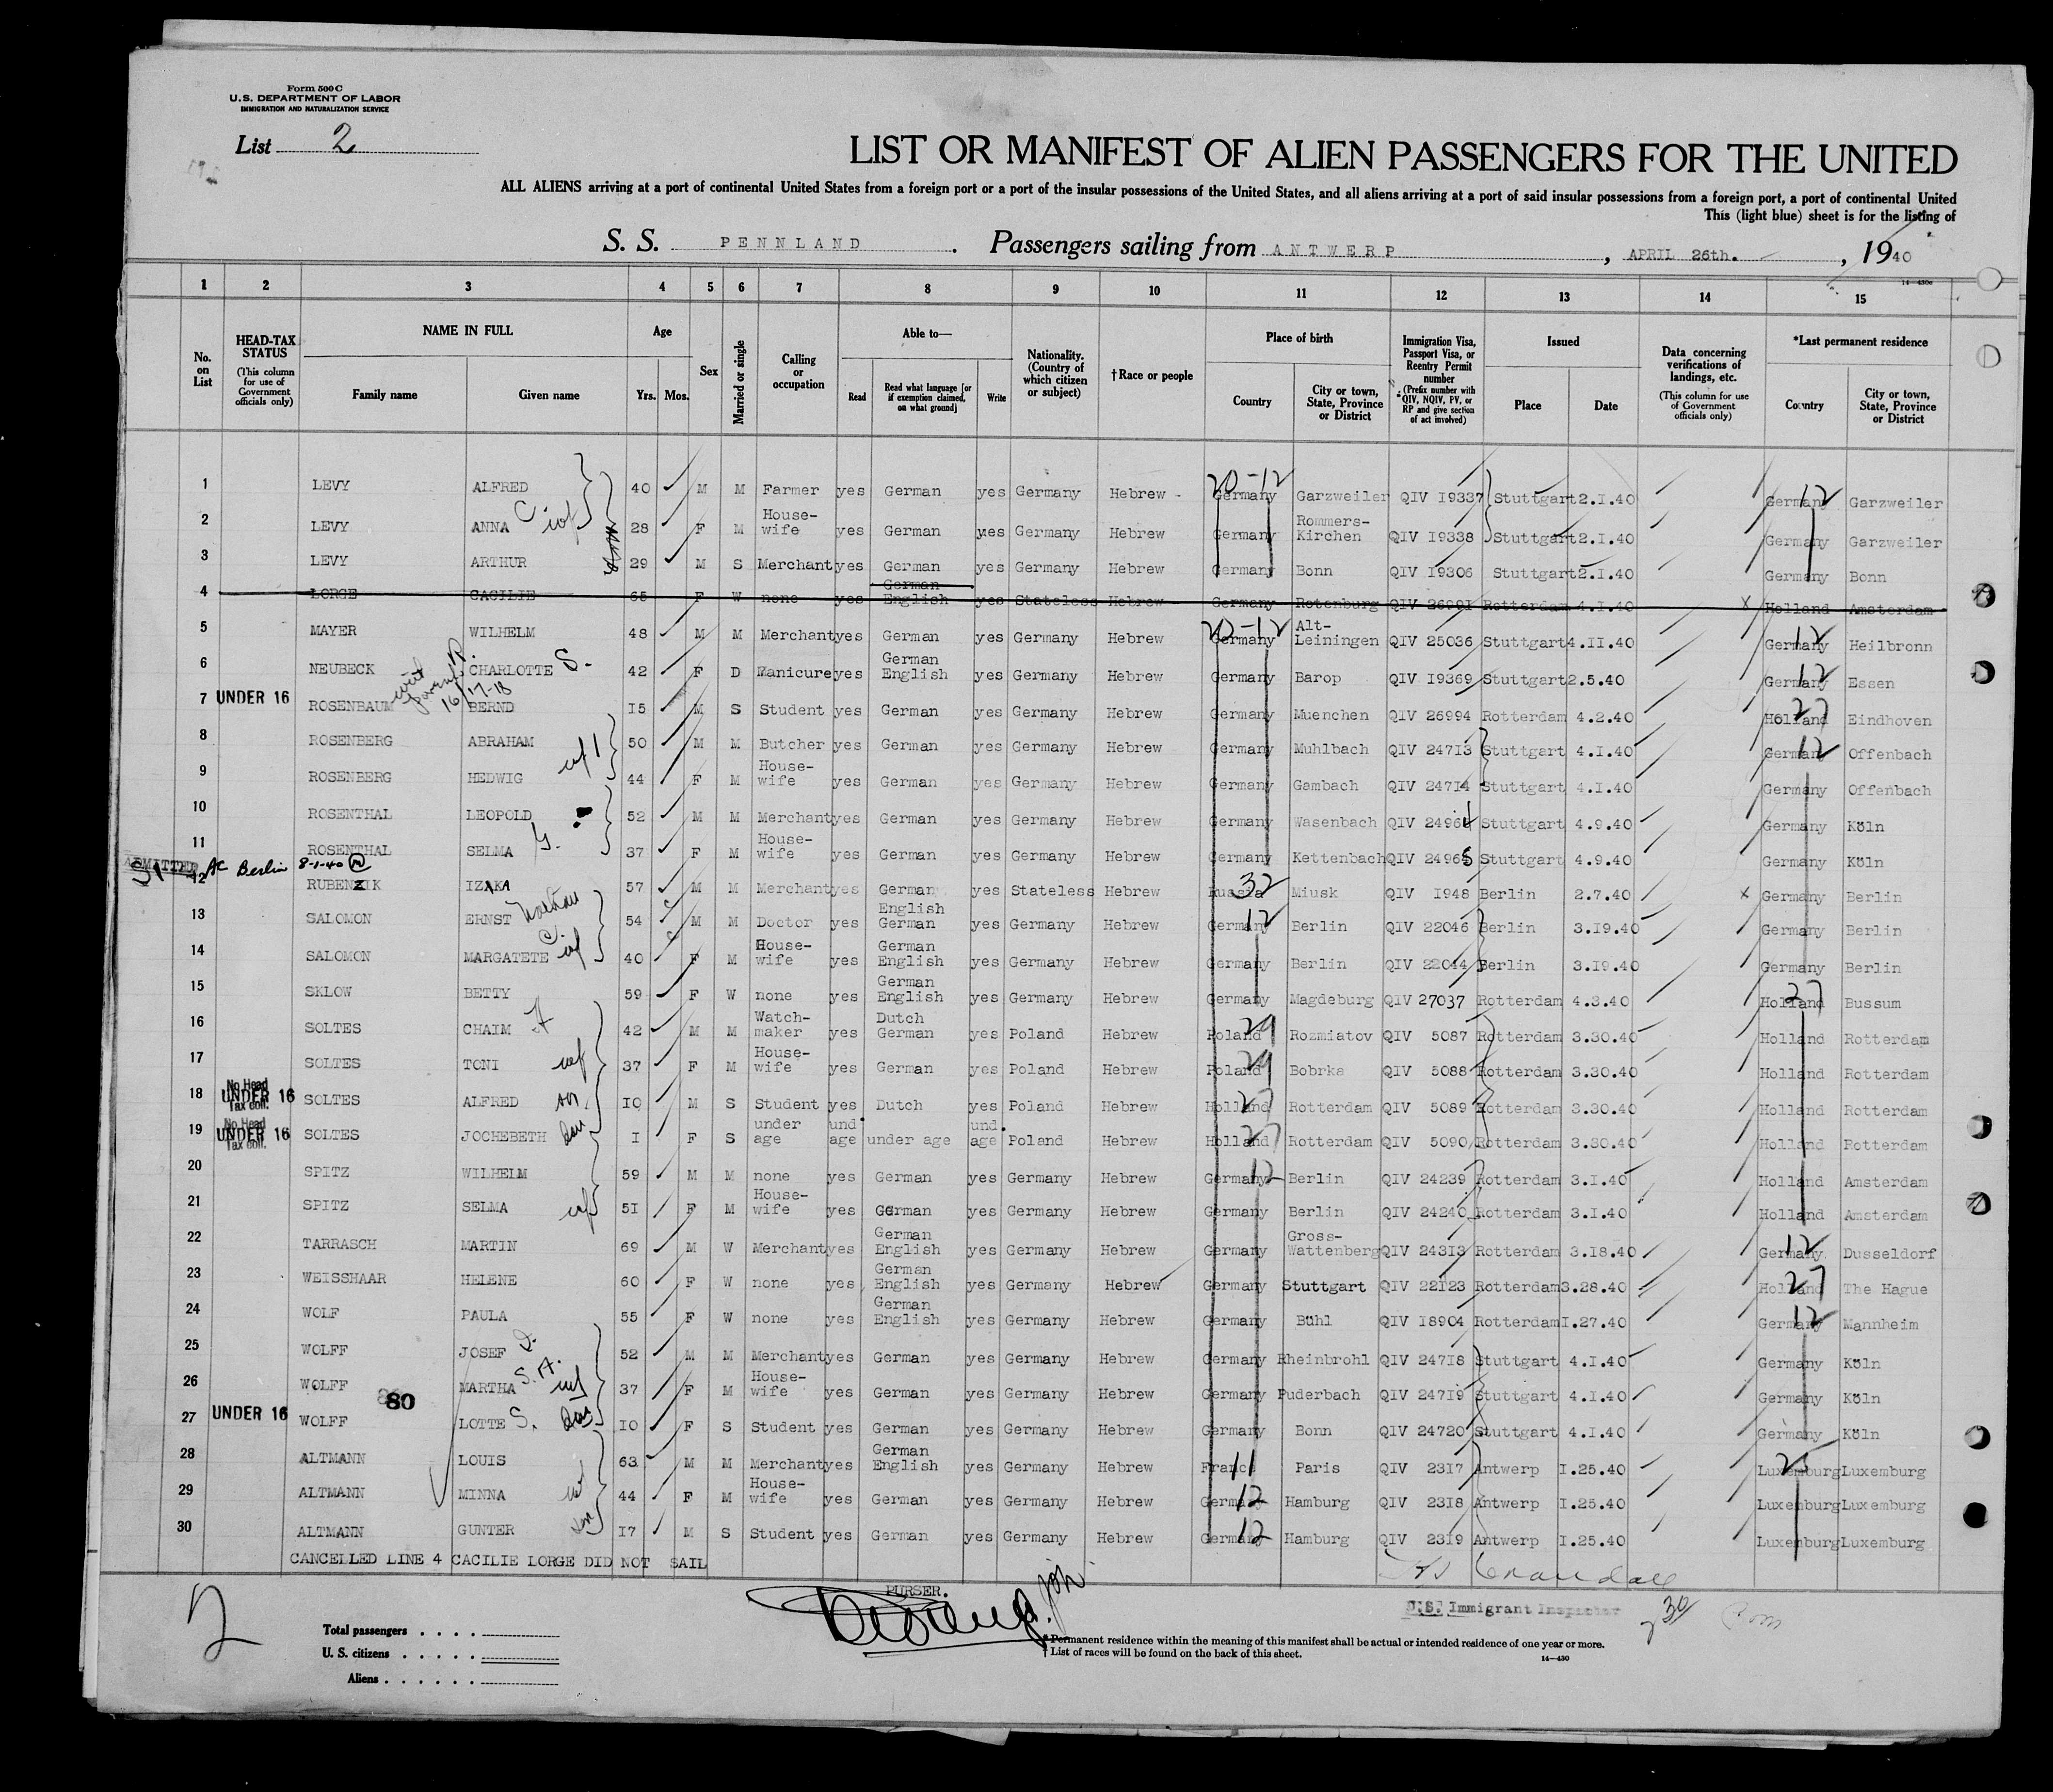 Form 500 C
U.S. DEPARTMENT OF LABOR
IMMIGRATION AND NATURALIZATION SERVICE
List 2
LIST OR MANIFEST OF ALIEN PASSENGERS FOR THE UNITED
ALL ALIENS arriving at a port of continental United States from a foreign port or a port of the insular possessions of the United States, and all aliens arriving at a port of said insular possessions from a foreign port, a port of continental United
This (light blue) sheet is for the listing of
S. S. PENNLAND. Passengers sailing from ANTWERP, APRIL 26th., 1940
14-430c
1 2 3 4 5 6 7 8 9 10 11 12 13 14 15
No. on List
HEAD-TAX STATUS (This column for use of Government officials only)
NAME IN FULL
Family name
Given name
Age
Yrs. Mos.
Sex
Married or single
Calling or occupation
Able to—
Read
Read what language [or if exemption claimed, on what ground]
Write
Nationality. (Country of which citizen or subject)
†Race or people
Place of birth
Country
City or town, State, Province or District
Immigration Visa, Passport Visa, or Reentry Permit number (Prefix number with QIV, NQIV, PV, or RP and give section of act involved)
Issued
Place
Date
Data concerning verifications of landings, etc. (This column for use of Government officials only)
*Last permanent residence
Country
City or town, State, Province or District
1 LEVY ALFRED 40 M M Farmer yes German yes Germany Hebrew - Germany 20-12 Garzweiler QIV I9337 Stuttgart 2.I.40 Germany 12 Garzweiler
2 LEVY ANNA C wf 28 F M House-wife yes German yes Germany Hebrew Germany Rommers-Kirchen QIV I9338 Stuttgart 2.I.40 Germany Garzweiler
3 LEVY ARTHUR 29 M S Merchant yes German yes Germany Hebrew Germany Bonn QIV I9306 Stuttgart 2.I.40 Germany Bonn
4 LORGE CACILIE 65 F W none yes German English yes Stateless Hebrew Germany Rotenburg QIV 26991 Rotterdam 4.I.40 X Holland Amsterdam
5 MAYER WILHELM 48 M M Merchant yes German yes Germany Hebrew Germany 20-12 Alt-Leiningen QIV 25036 Stuttgart 4.II.40 Germany 12 Heilbronn
6 NEUBECK CHARLOTTE S. 42 F D Manicure yes German English yes Germany Hebrew Germany Barop QIV I9369 Stuttgart 2.5.40 Germany 12 Essen
7 UNDER 16 ROSENBAUM BERND 16/17-18 I5 M S Student yes German yes Germany Hebrew Germany Muenchen QIV 26994 Rotterdam 4.2.40 Holland 27 Eindhoven
8 ROSENBERG ABRAHAM 50 M M Butcher yes German yes Germany Hebrew Germany Muhlbach QIV 247I3 Stuttgart 4.I.40 Germany 12 Offenbach
9 ROSENBERG HEDWIG wf 44 F M House-wife yes German yes Germany Hebrew Germany Gambach QIV 247I4 Stuttgart 4.I.40 Germany Offenbach
10 ROSENTHAL LEOPOLD 52 M M Merchant yes German yes Germany Hebrew Germany Wasenbach QIV 24964 Stuttgart 4.9.40 Germany Köln
11 ROSENTHAL SELMA 37 F M House-wife yes German yes Germany Hebrew Germany Kettenbach QIV 24965 Stuttgart 4.9.40 Germany Köln
ADMITTED SI AC Berlin 8-1-40
12 RUBENZIK IZAKA 57 M M Merchant yes German yes Stateless Hebrew Russia 32 Miusk QIV I948 Berlin 2.7.40 X Germany Berlin
13 SALOMON ERNST 54 M M Doctor yes English German yes Germany Hebrew Germany 12 Berlin QIV 22046 Berlin 3.I9.40 Germany Berlin
14 SALOMON MARGATETE C wf 40 F M House-wife yes German English yes Germany Hebrew Germany Berlin QIV 22044 Berlin 3.I9.40 Germany Berlin
15 SKLOW BETTY 59 F W none yes German English yes Germany Hebrew Germany Magdeburg QIV 27037 Rotterdam 4.3.40 Holland 27 Bussum
16 SOLTES CHAIM 42 M M Watch-maker yes Dutch German yes Poland Hebrew Poland 29 Rozmiatov QIV 5087 Rotterdam 3.30.40 Holland Rotterdam
17 SOLTES TONI wf 37 F M House-wife yes German yes Poland Hebrew Poland 29 Bobrka QIV 5088 Rotterdam 3.30.40 Holland Rotterdam
18 No Head Tax coll. UNDER 16 SOLTES ALFRED son I0 M S Student yes Dutch yes Poland Hebrew Holland 27 Rotterdam QIV 5089 Rotterdam 3.30.40 Holland Rotterdam
19 No Head Tax coll. UNDER 16 SOLTES JOCHEBETH dau I F S under age und. age under age und. age Poland Hebrew Holland 27 Rotterdam QIV 5090 Rotterdam 3.30.40 Holland Rotterdam
20 SPITZ WILHELM 59 M M none yes German yes Germany Hebrew Germany 12 Berlin QIV 24239 Rotterdam 3.I.40 Holland Amsterdam
21 SPITZ SELMA wf 5I F M House-wife yes German yes Germany Hebrew Germany Berlin QIV 24240 Rotterdam 3.I.40 Holland Amsterdam
22 TARRASCH MARTIN 69 M W Merchant yes German English yes Germany Hebrew Germany Gross-Wattenberg QIV 243I3 Rotterdam 3.I8.40 Germany 12 Dusseldorf
23 WEISSHAAR HELENE 60 F W none yes German English yes Germany Hebrew Germany Stuttgart QIV 22I23 Rotterdam 3.28.40 Holland 27 The Hague
24 WOLF PAULA 55 F W none yes German English yes Germany Hebrew Germany Bühl QIV I8904 Rotterdam I.27.40 Germany 12 Mannheim
25 WOLFF JOSEF 52 M M Merchant yes German yes Germany Hebrew Germany Rheinbrohl QIV 247I8 Stuttgart 4.I.40 Germany Köln
26 WOLFF MARTHA S.A. wf 37 F M House-wife yes German yes Germany Hebrew Germany Puderbach QIV 247I9 Stuttgart 4.I.40 Germany Köln
80
27 UNDER 16 WOLFF LOTTE S. dau I0 F S Student yes German yes Germany Hebrew Germany Bonn QIV 24720 Stuttgart 4.I.40 Germany Köln
28 ALTMANN LOUIS 63 M M Merchant yes German English yes Germany Hebrew France 11 Paris QIV 23I7 Antwerp I.25.40 Luxemburg 25 Luxemburg
29 ALTMANN MINNA wf 44 F M House-wife yes German yes Germany Hebrew Germany 12 Hamburg QIV 23I8 Antwerp I.25.40 Luxemburg Luxemburg
30 ALTMANN GUNTER son I7 M S Student yes German yes Germany Hebrew Germany 12 Hamburg QIV 23I9 Antwerp I.25.40 Luxemburg Luxemburg
CANCELLED LINE 4 CACILIE LORGE DID NOT SAIL
PURSER.
U.S. Immigrant Inspector
2
30
Total passengers
U. S. citizens
Aliens
* Permanent residence within the meaning of this manifest shall be actual or intended residence of one year or more.
† List of races will be found on the back of this sheet.
14-430